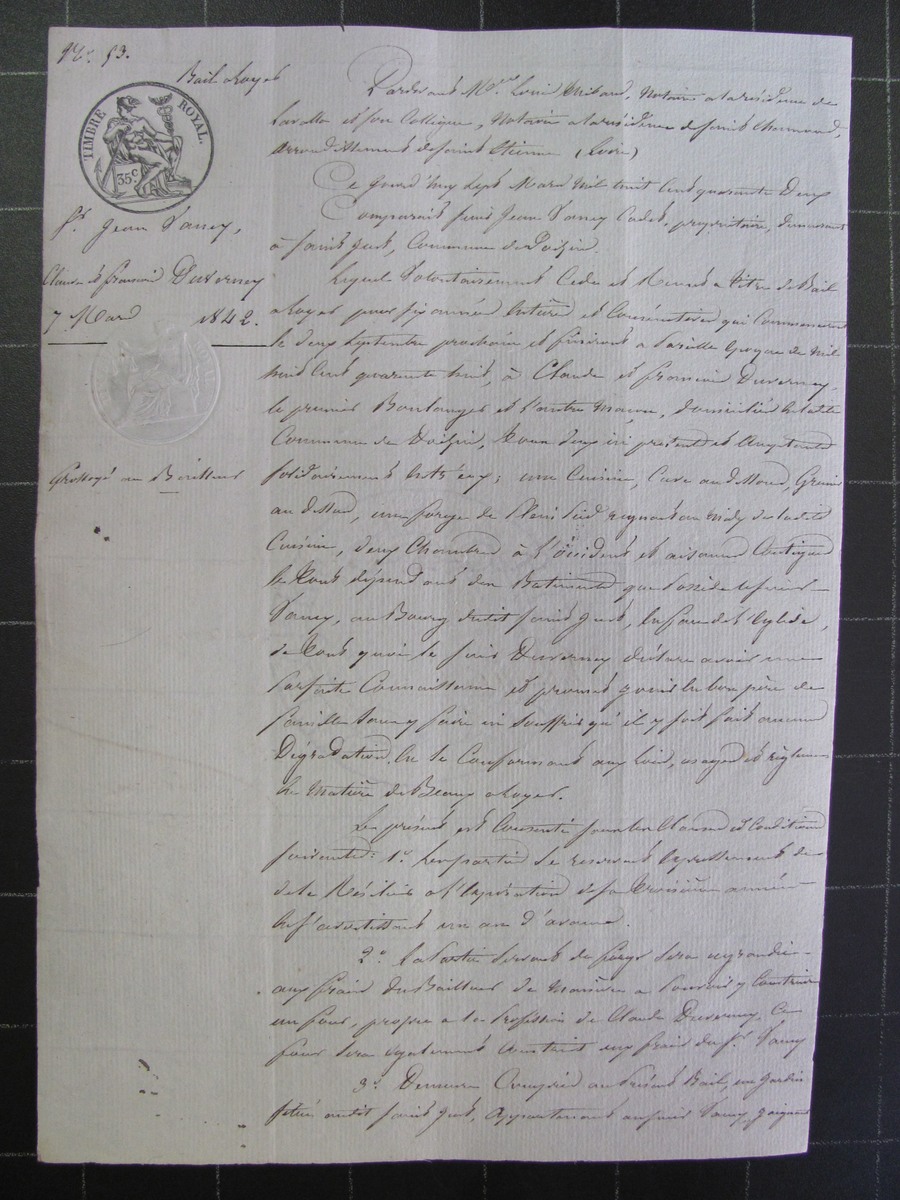 N°. 53.
Bail à Loyer
TIMBRE ROYAL.
35 C
Sr. Jean Vancy,
Claude et françois Duverney
7 Mars 1842.
Grossoyé au Bailleur
Pardevant Me. Louis Thibaud, Notaire à la résidence de
Lavalla et son Collègue, Notaire à la résidence de Saint Chamond,
arrondissement de Saint Etienne (Loire)
Ce Jourd'huy Sept Mars Mil huit Cent quarante Deux
Comparait Sieur Jean Vancy Cadet, propriétaire, demeurant
à Saint Just, Commune de Doizieu
Lequel Volontairement Cède et Remet à titre de Bail
à Loyer pour six années Entières et Consécutives qui Commenceront
le deux Septembre prochain et finiront à Pareille Epoque de mil
huit Cent quarante huit, à Claude et françois Duverney,
le premier Boulanger et l'autre Maçon, domiciliés en ladite
Commune de Doizieu, tous deux ici présents et Acceptants
solidairement entr'eux; une Cuisine, Cave au dessous, Grenier
au dessus, une forge de Plein pied regnant au midy de ladite
Cuisine, deux Chambres à l'Occident et aisances Contigues
le tout dépendant des Batiments que Possède le sieur
Vancy, au Bourg dudit Saint Just, en face de l'Eglise,
de tout quoi le Sieur Duverney déclare avoir une
Parfaite Connaissance et promet jouir en bon père de
famille sans y faire ni Souffrir qu'il y soit fait aucune
Dégradation, En se Conformant aux Lois, usages et règlements
En Matière de Beaux à Loyer.
Le présent est Consenti sous les Clauses et Conditions
suivantes: 1°. les parties se réservent Expressément de
de le Résilier à l'Expiration de la Troisième année
En s'avertissant un an d'avance.
2°. la Partie Servant de forge Sera agrandie
aux frais du Bailleur de Manière à Pouvoir y Construire
un four, propre à la Profession de Claude Duverney, Ce
four Sera également Construit aux frais du Sr. Vancy
3°. Demeure Compris au Présent Bail, un Jardin
situé audit Saint Just, Appartenant au sieur Vancy, joignant